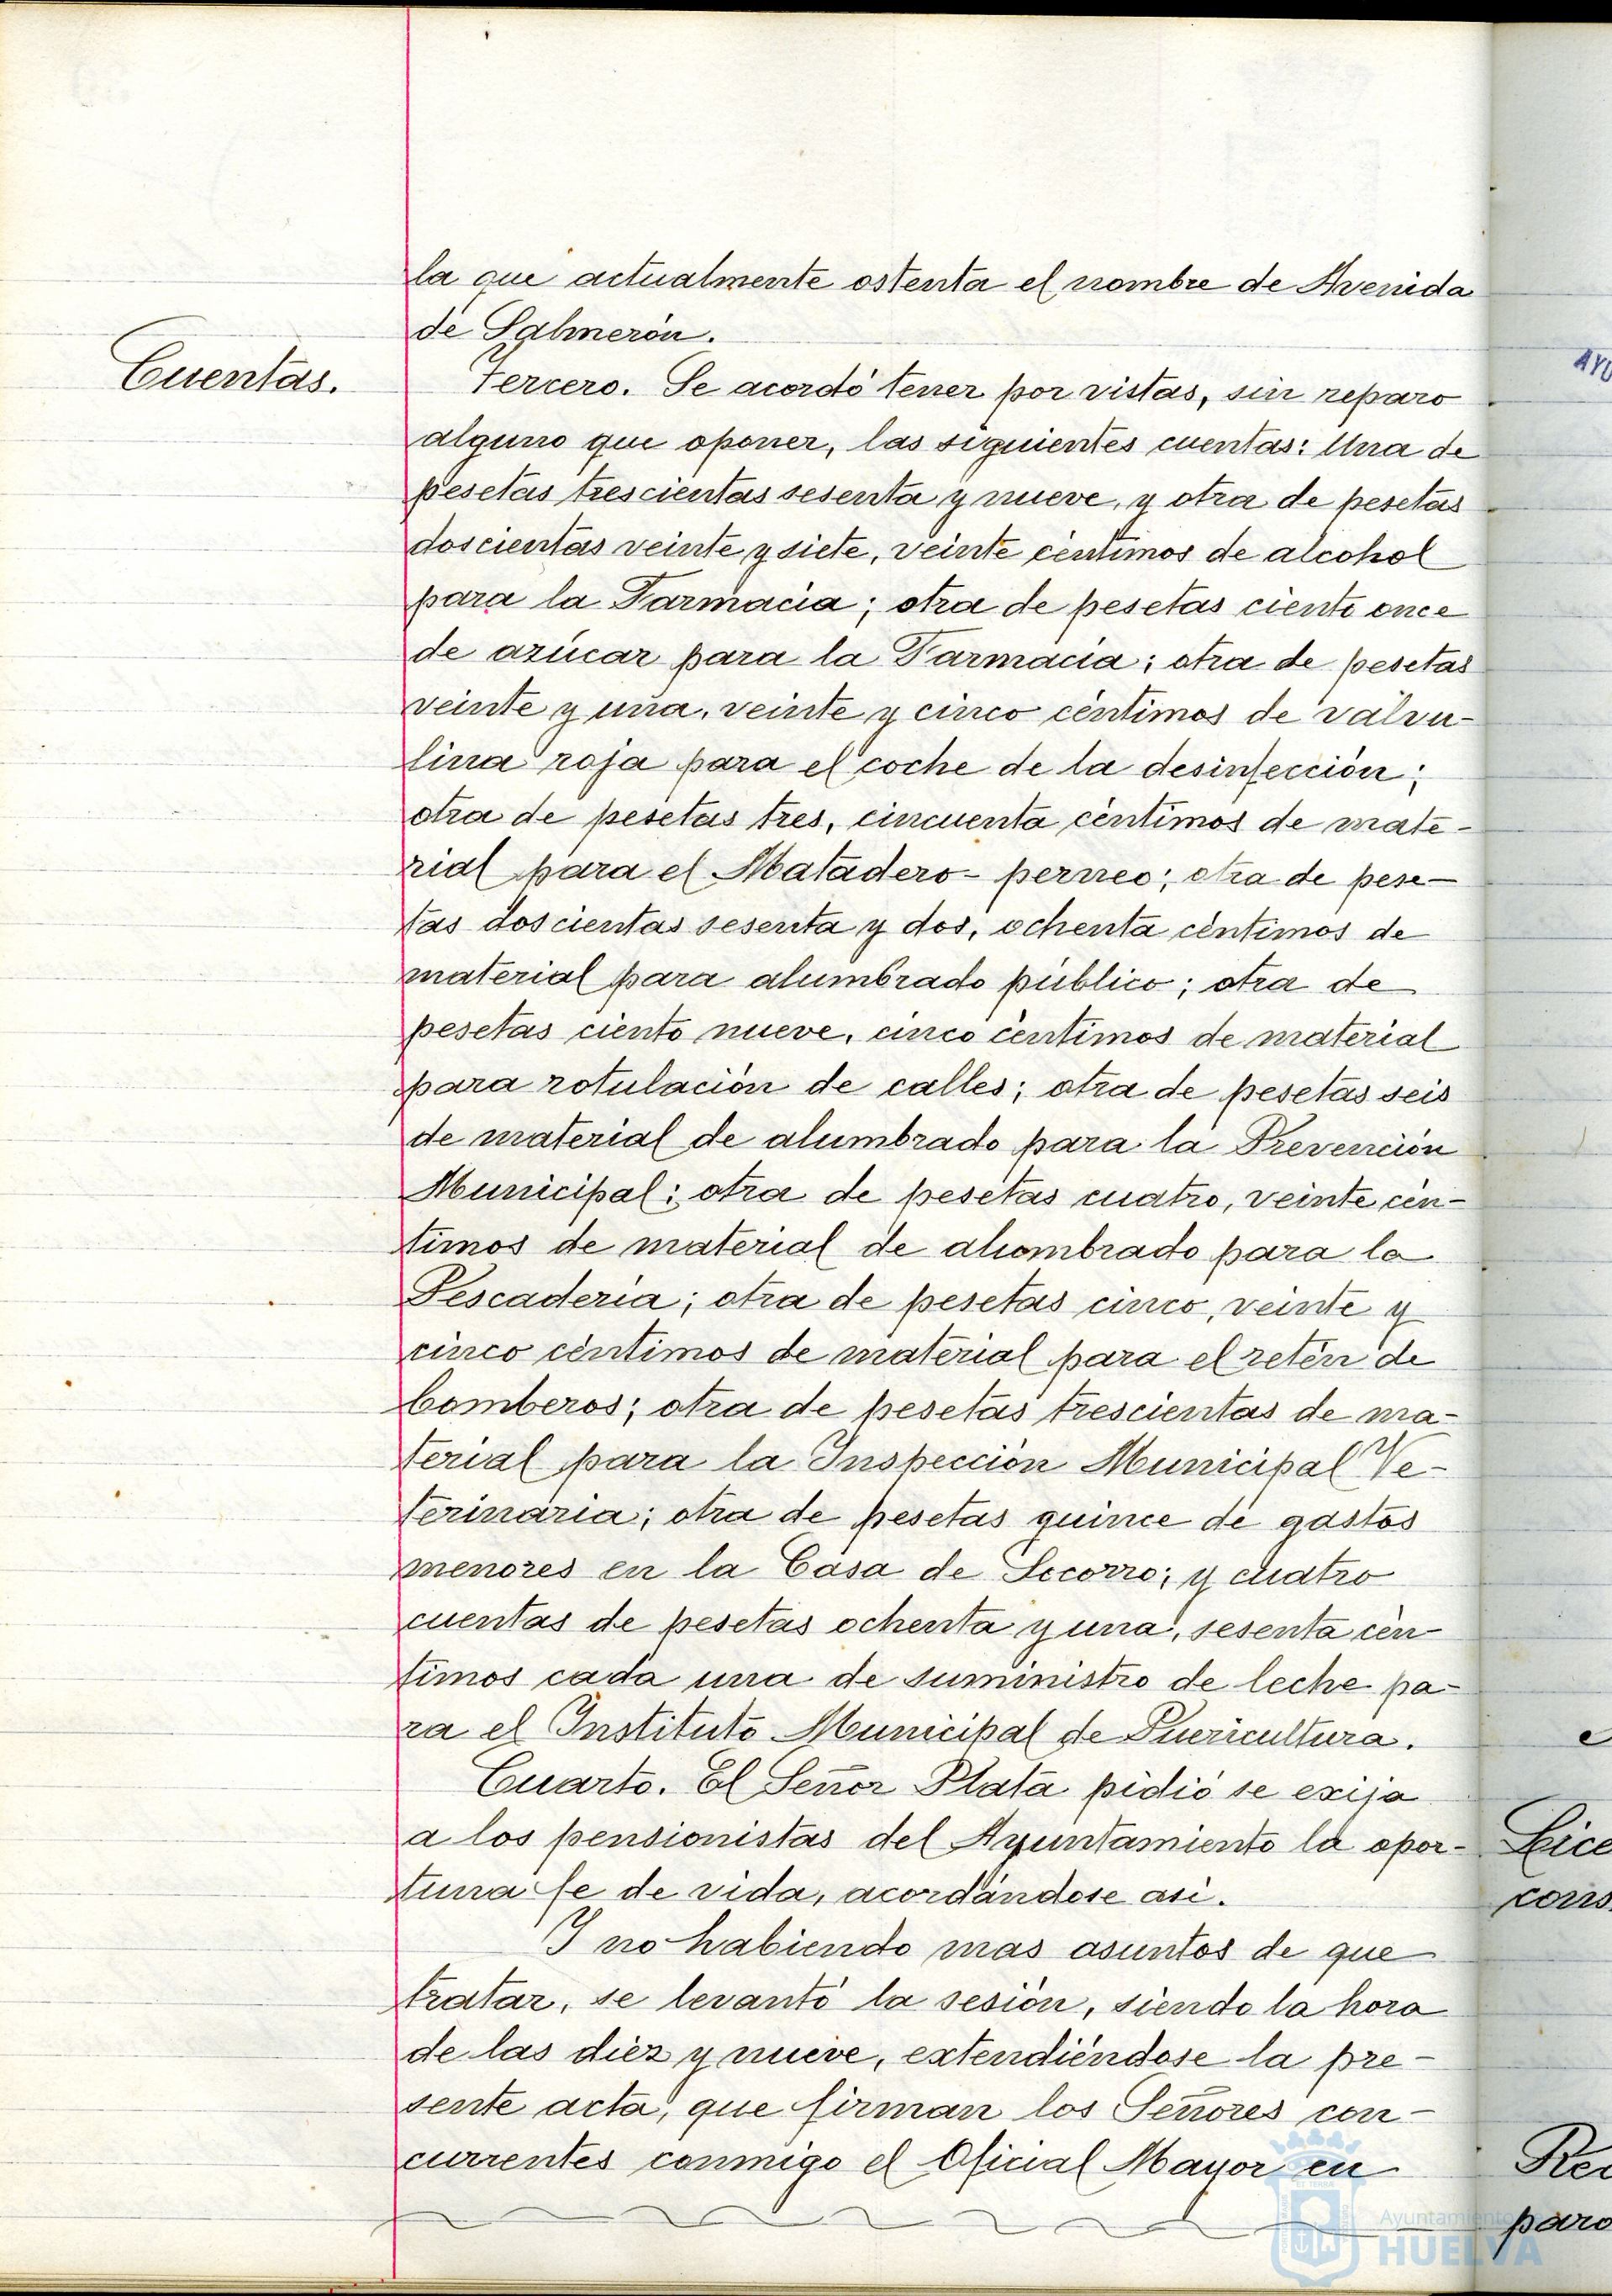 la que actualmente ostenta el nombre de Avenida
de Salmerón.
Cuentas.
Tercero. Se acordó tener por vistas, sin reparo
alguno que oponer, las siguientes cuentas: Una de
pesetas trescientas sesenta y nueve, y otra de pesetas
doscientas veinte y siete, veinte céntimos de alcohol
para la Farmacia; otra de pesetas ciento once
de azúcar para la Farmacia; otra de pesetas
veinte y una, veinte y cinco céntimos de valvu-
lina roja para el coche de la desinfección;
otra de pesetas tres, cincuenta céntimos de mate-
rial para el Matadero-perneo; otra de pese-
tas doscientas sesenta y dos, ochenta céntimos de
material para alumbrado público; otra de
pesetas ciento nueve, cinco céntimos de material
para rotulación de calles; otra de pesetas seis
de material de alumbrado para la Prevención
Municipal; otra de pesetas cuatro, veinte cén-
timos de material de alombrado para la
Pescadería; otra de pesetas cinco, veinte y
cinco céntimos de material para el retén de
bomberos; otra de pesetas trescientas de ma-
terial para la Inspección Municipal Ve-
terinaria; otra de pesetas quince de gastos
menores en la Casa de Socorro; y cuatro
cuentas de pesetas ochenta y una, sesenta cén-
timos cada una de suministro de leche pa-
ra el Instituto Municipal de Puericultura.
Cuarto. El Señor Plata pidió se exija
a los pensionistas del Ayuntamiento la opor-
tuna fe de vida, acordándose así.
Y no habiendo mas asuntos de que
tratar, se levantó la sesión, siendo la hora
de las diez y nueve, extendiéndose la pre-
sente acta, que firman los Señores con-
currentes conmigo el Oficial Mayor en
Ayuntamiento
HUELVA